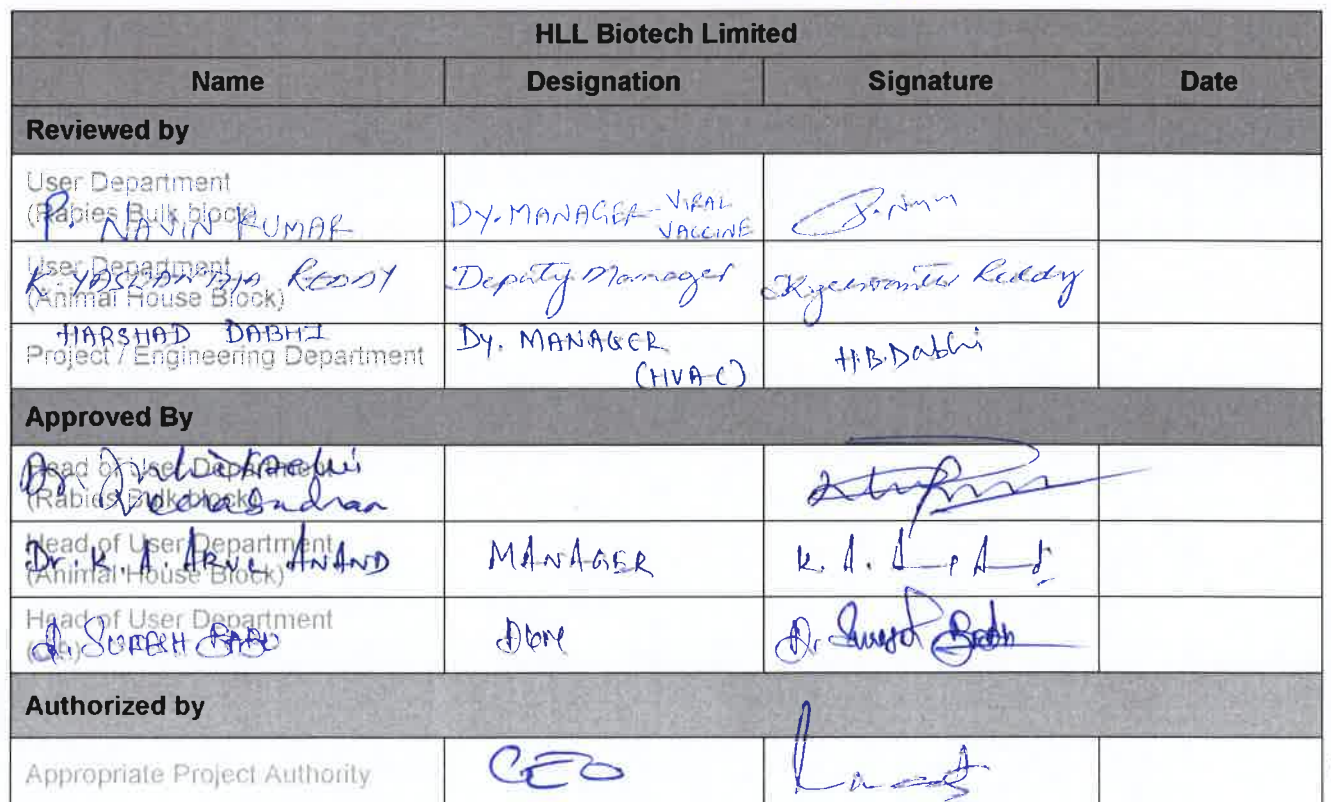 HLL Biotech Limited
Name Designation Signature Date
Reviewed by
User Department
(Rabies Bulk block)
P. NAVIN KUMAR
DY. MANAGER - VIRAL
VACCINE
User Department
(Animal House Block)
K. REDDY
Deputy Manager
Reddy
HARSHAD DABHI
Project / Engineering Department
Dy. MANAGER
(HVAC)
H.B.Dabhi
Approved By
Head of User Department
(Rabies Bulk block)
Dr.
Head of User Department
(Animal House Block)
Dr. K. A. ARUL ANAND
MANAGER
K. A.
Head of User Department
SURESH BABU
Authorized by
Appropriate Project Authority
CEO